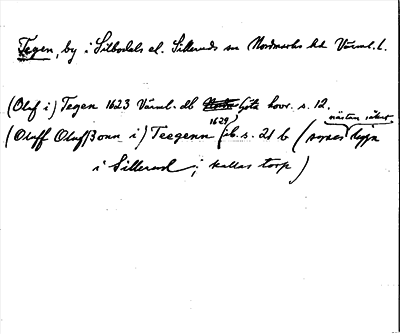 Tegen, by i Silbodals el. Silleruds sn Nordmarks hd Värml. l.
(Oluf i) Tegen 1623 Värml. db Göta hovr. s. 12.
(Oluff Oluffßonn i) Teegenn (1629 ib. s. 21 b (synes nästan säkert ligga
i Sillerud; kallas torp)